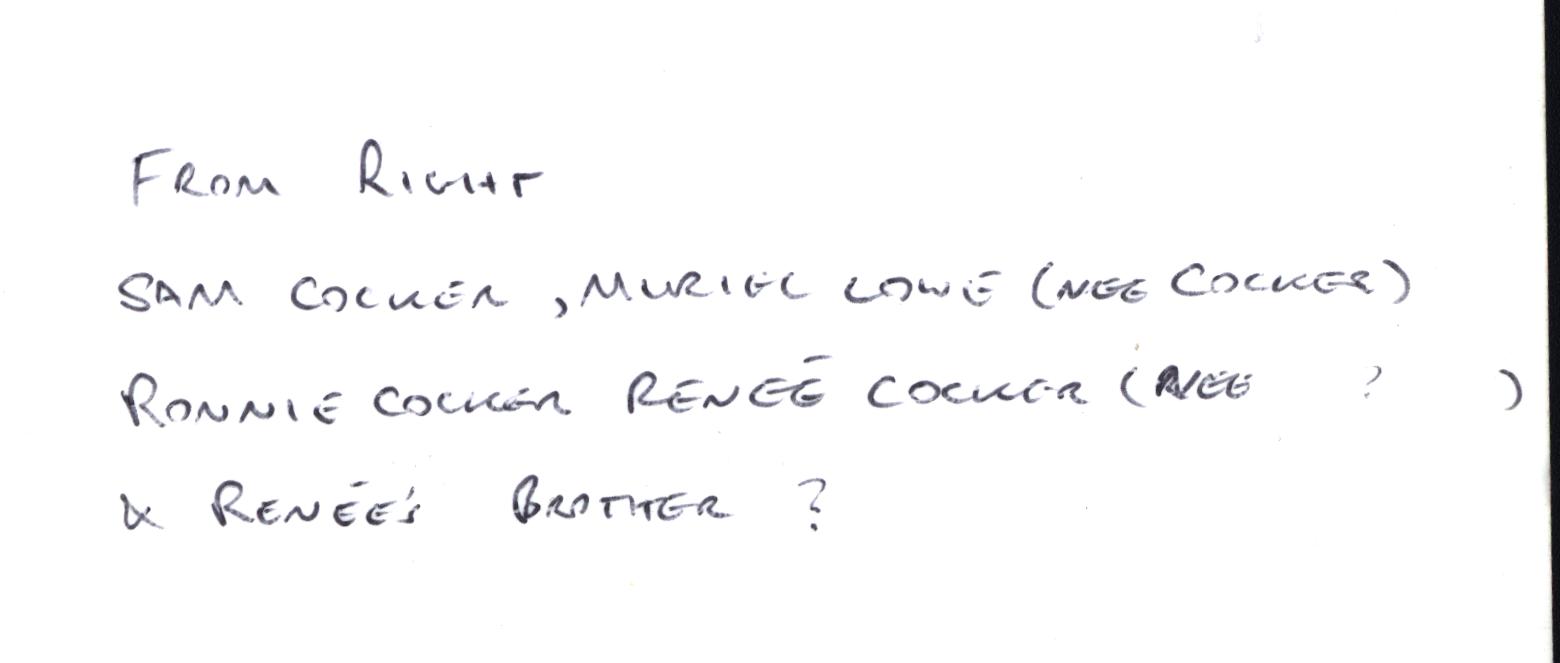 FROM RIGHT
SAM COCKER, MURIEL LOWE (NEE COCKER)
RONNIE COCKER RENEÉ COCKER (NEE ? )
& RENÉE'S BROTHER ?